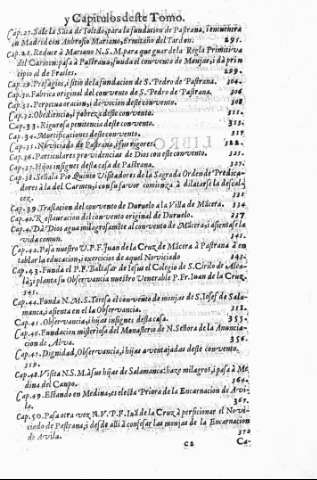 y Capitulos deste Tomo.
Cap. 27. Sale la Sãta de Toledo, para la fundacion de Pastrana, i encuẽtra
en Madrid con Ambrosio Mariano, Ermitaño del Tardon. 291.
Cap. 28. Reduce à Mariano N. S. M. para que guarde la Regla Primitiva
del Carmen: passa à Pastrana, fũnda el convento de Monjas, i dà prin
cipio al de Frailes. 299.
Cap. 29. Presagios, i sitio de la fundacion de S. Pedro de Pastrana. 304.
Cap. 30. Fabrica original del convento de S. Pedro de Pastrana. 306
Cap. 31. Perpetua oracion, i devocion deste convento. 308
Cap. 32. Obediencia, i pobreza deste convento. 311
Cap. 33. Rigurosa penitencia deste convento.
Cap. 34. Mortificaciones deste convento. 317.
Cap. 35. Noviciado de Pastrana, i sus rigores. 322.
Cap. 36. Particulares providencias de Dios con este convento. 325.
Cap. 37. Hijos insignes desta casa de Pastrana. 327.
Cap. 38. Señala Pio Quinto Visitadores de la Sagrada Orden de Predica-
dores à la del Carmen, i con su favor comiẽça à dilatarse la descal-
cez.
Cap. 39. Traslacion del convento de Duruelo à la Villa de Mãcera. 334.
Cap. 40. Restauracion del convento original de Duruelo. 337
Cap. 41. Dà Dios agua milagrosamẽte al convento de Mãcera, i assientase la
vida comun. 341.
Cap. 42. Passa nuestro V. P. F. Juan de la Cruz de Mãcera à Pastrana à en
tablar la educacion, i exercicios de aquel Noviciado 343.
Cap. 43. Funda el P. F. Baltasar de Iesus el Colegio de S. Cirilo de Alca-
là; planta su Observancia nuestro Venerable P. Fr. Iuan de la Cruz.
345.
Cap. 44. Funda N. M. S. Teresa el convento de monjas de S. Iosef de Sala-
manca, i assienta en el la Observancia.
Cap. 45. Observancia, i hijas insignes desta casa. 353.
Cap. 46. Fundacion misteriosa del Monasterio de N. Señora de la Anuncia-
cion de Alva. 356.
Cap. 47. Dignidad, Observancia, i hijas aventajadas deste convento.
359.
Cap. 48. Visita N. S. M. à sus hijas de Salamanca: haze milagros, i passa à Me
dina del Campo. 364.
Cap. 49. Estando en Medina, es electa Priora de la Encarnacion de Avi-
la. 367.
Cap. 50. Passa otra vez N. V. P. F. Iuã de la Cruz à perficionar el Novi-
ciado de Pastrana, i desde alli à confessar las monjas de la Encarnacion
de Avila. 372
C2 Ca-